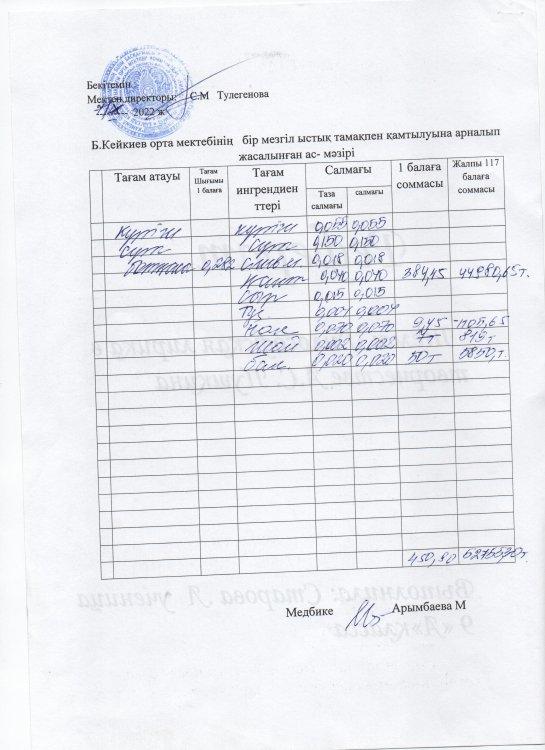 Бекітемін
Мектеп директоры: С.М Тулегенова
2022 ж
Б.Кейкиев орта мектебінің бір мезгіл ыстық тамақпен қамтылуына арналып
жасалынған ас- мәзірі
Тағам атауы Тағам Шығымы 1 балаға Тағам ингрендиен ттері Салмағы 1 балаға соммасы Жалпы 117 балаға соммасы
Таза салмағы салмағы
күріш күріш 0,055 0,055
сүт сүт 0,150 0,150
ботқасы 0,282 0,018 0,018
0,040 0,040 384,45 44980,65т.
0,015 0,015
Тұз 0,004 0,004
Нан 0,070 0,070 9,45 1105,65
Шай 0,002 0,002 7т 819т
0,020 0,020 50т 5850т.
450,90
Медбике Арымбаева М